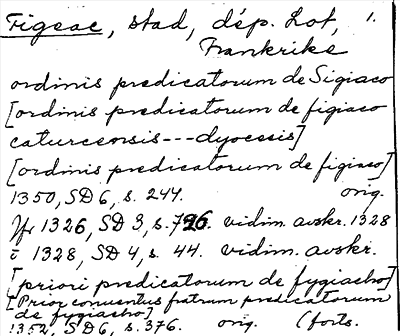 Figeac, stad, dép. Lot, 1.
Frankrike
ordinis predicatorum de Sigiaco
[ordinis predicatorum de figiaco
caturcensis---dyocesis]
[ordinis predicatorum de figiaco]
1350, SD 6, s. 244. orig.
Jfr 1326, SD 3, s. 726. vidim. avskr. 1328
i 1328, SD 4, s. 44. vidim. avskr.
[priori predicatorum de fygiacho]
[Prior conuentus fratrum predicatorum
de fygiacho]
1352, SD 6, s. 376. orig. (forts.